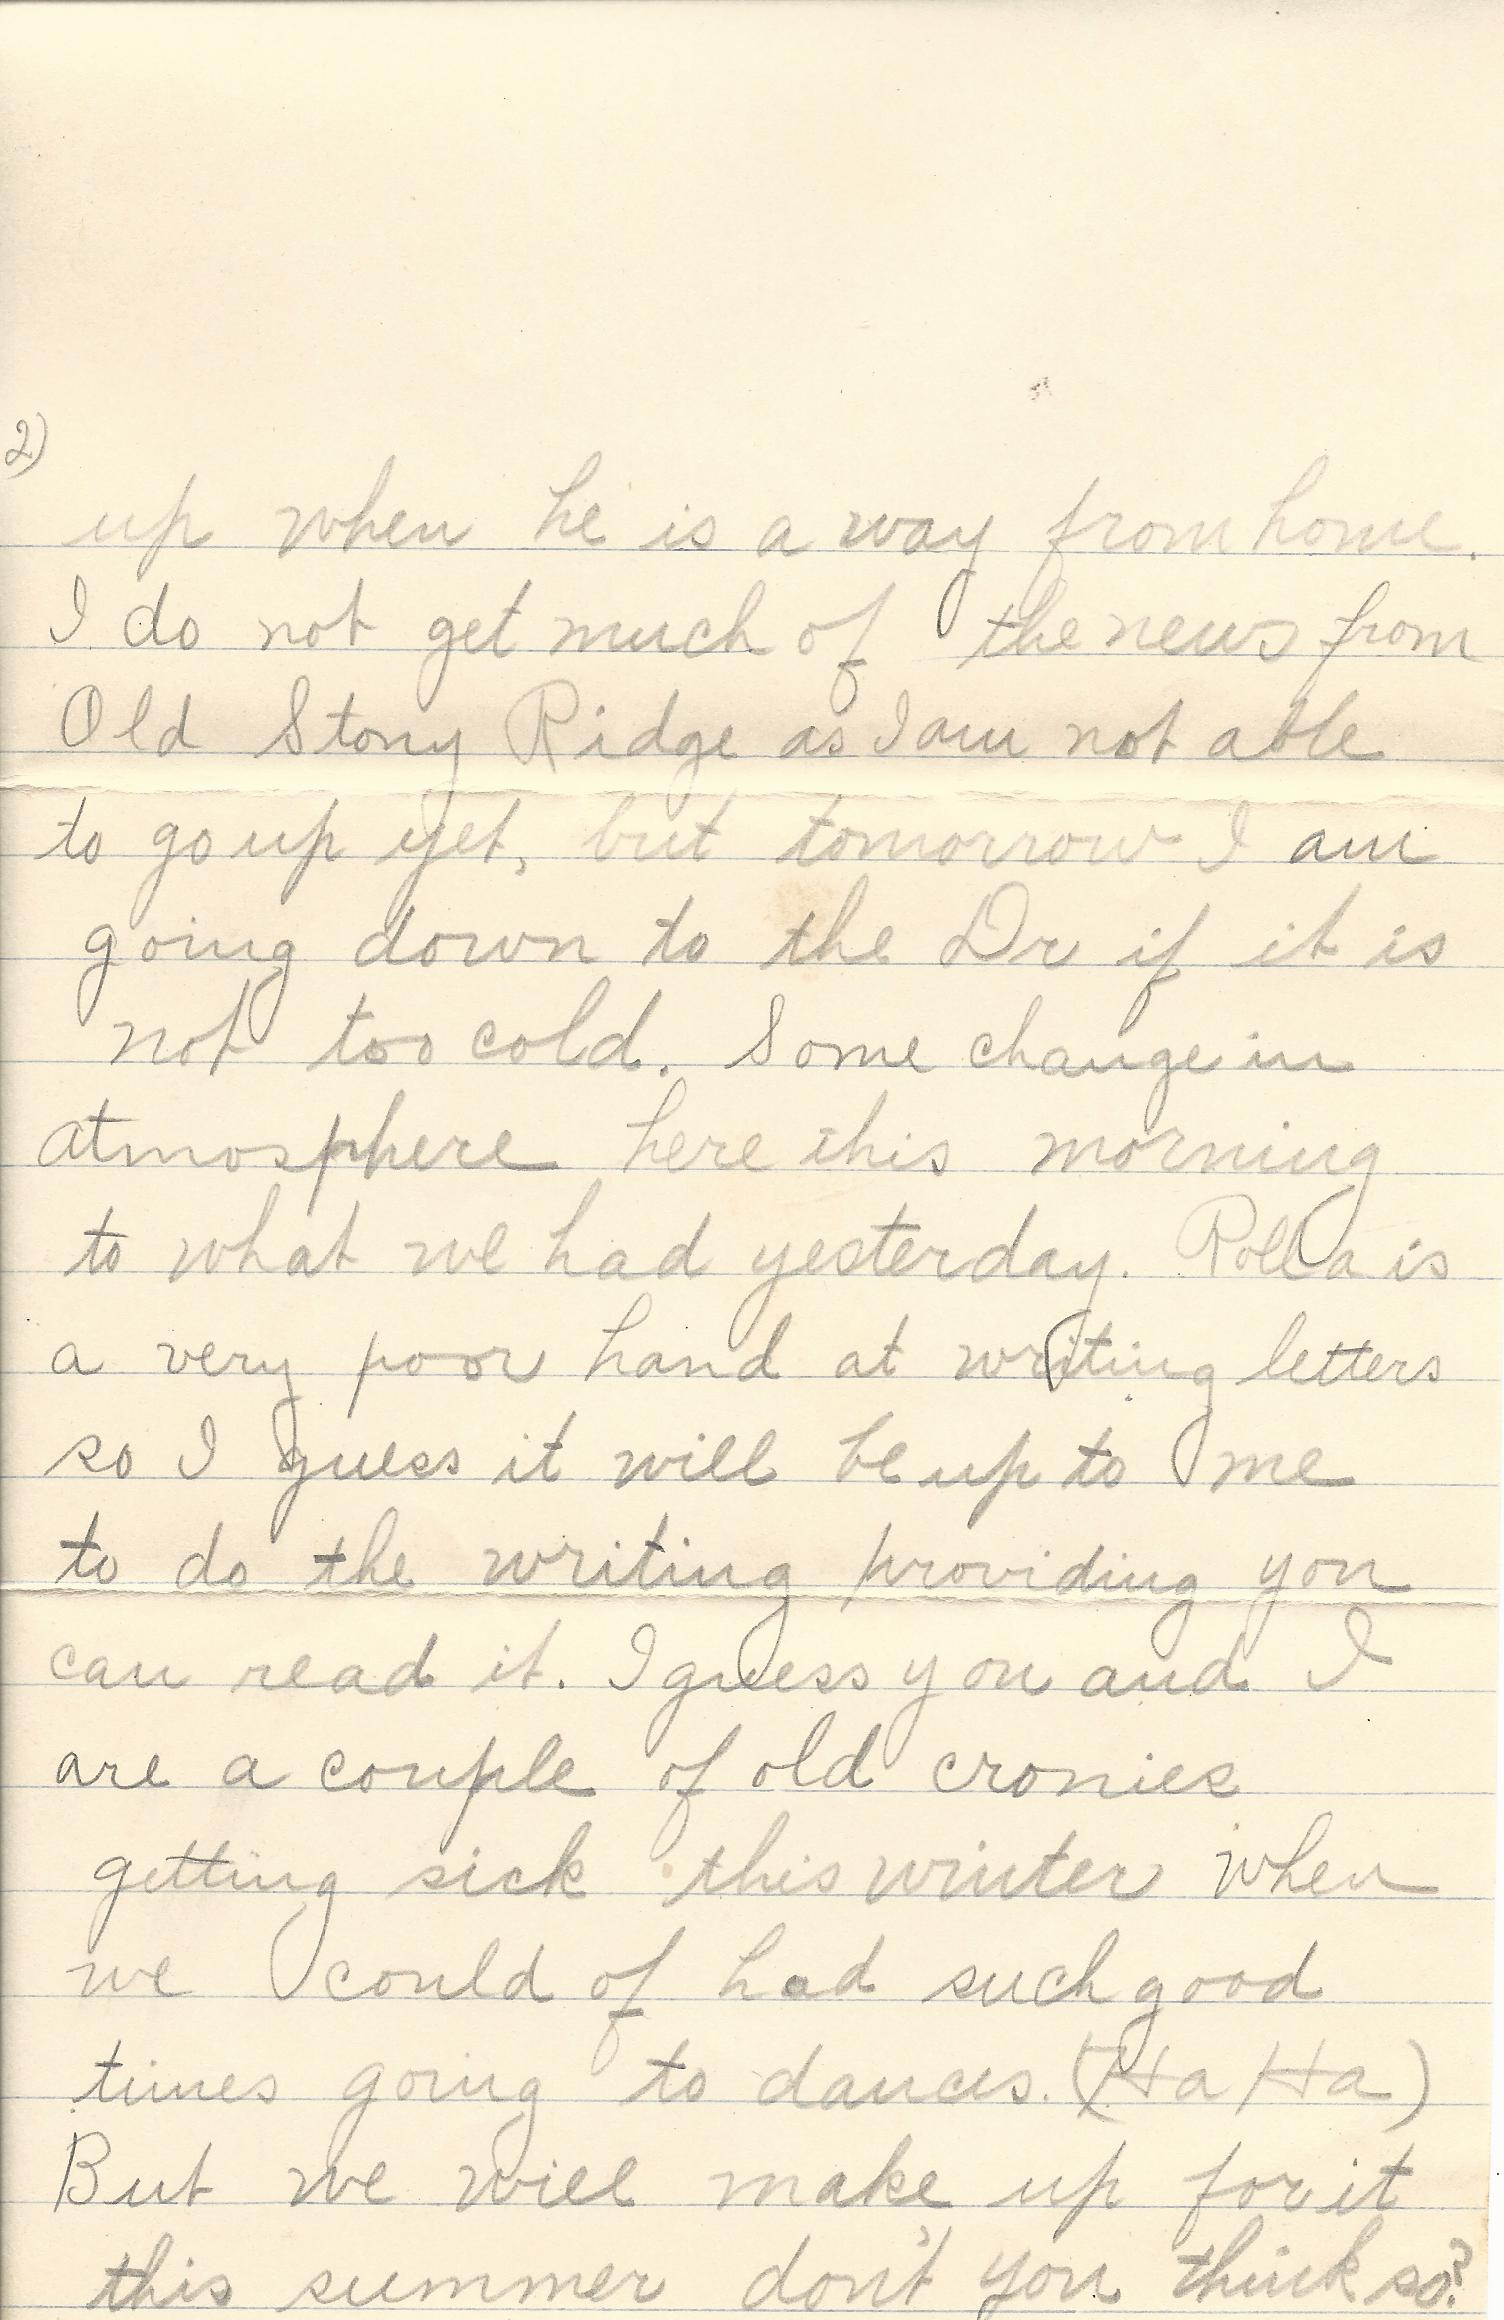 2)
up when he is a way from home.
I do not get much of the news from
Old Stony Ridge as I am not able
to go up yet, but tomorrow I am
going down to the Dr if it is
not too cold. Some change in
atmosphere here this morning
to what we had yesterday. Rolla is
a very poor hand at writing letters
so I guess it will be up to me
to do the writing providing you
can read it. I guess you and I
are a couple of old cronies
getting sick this winter when
we could of had such good
times going to dances. (Ha Ha)
But we will make up for it
this summer don't you think so?